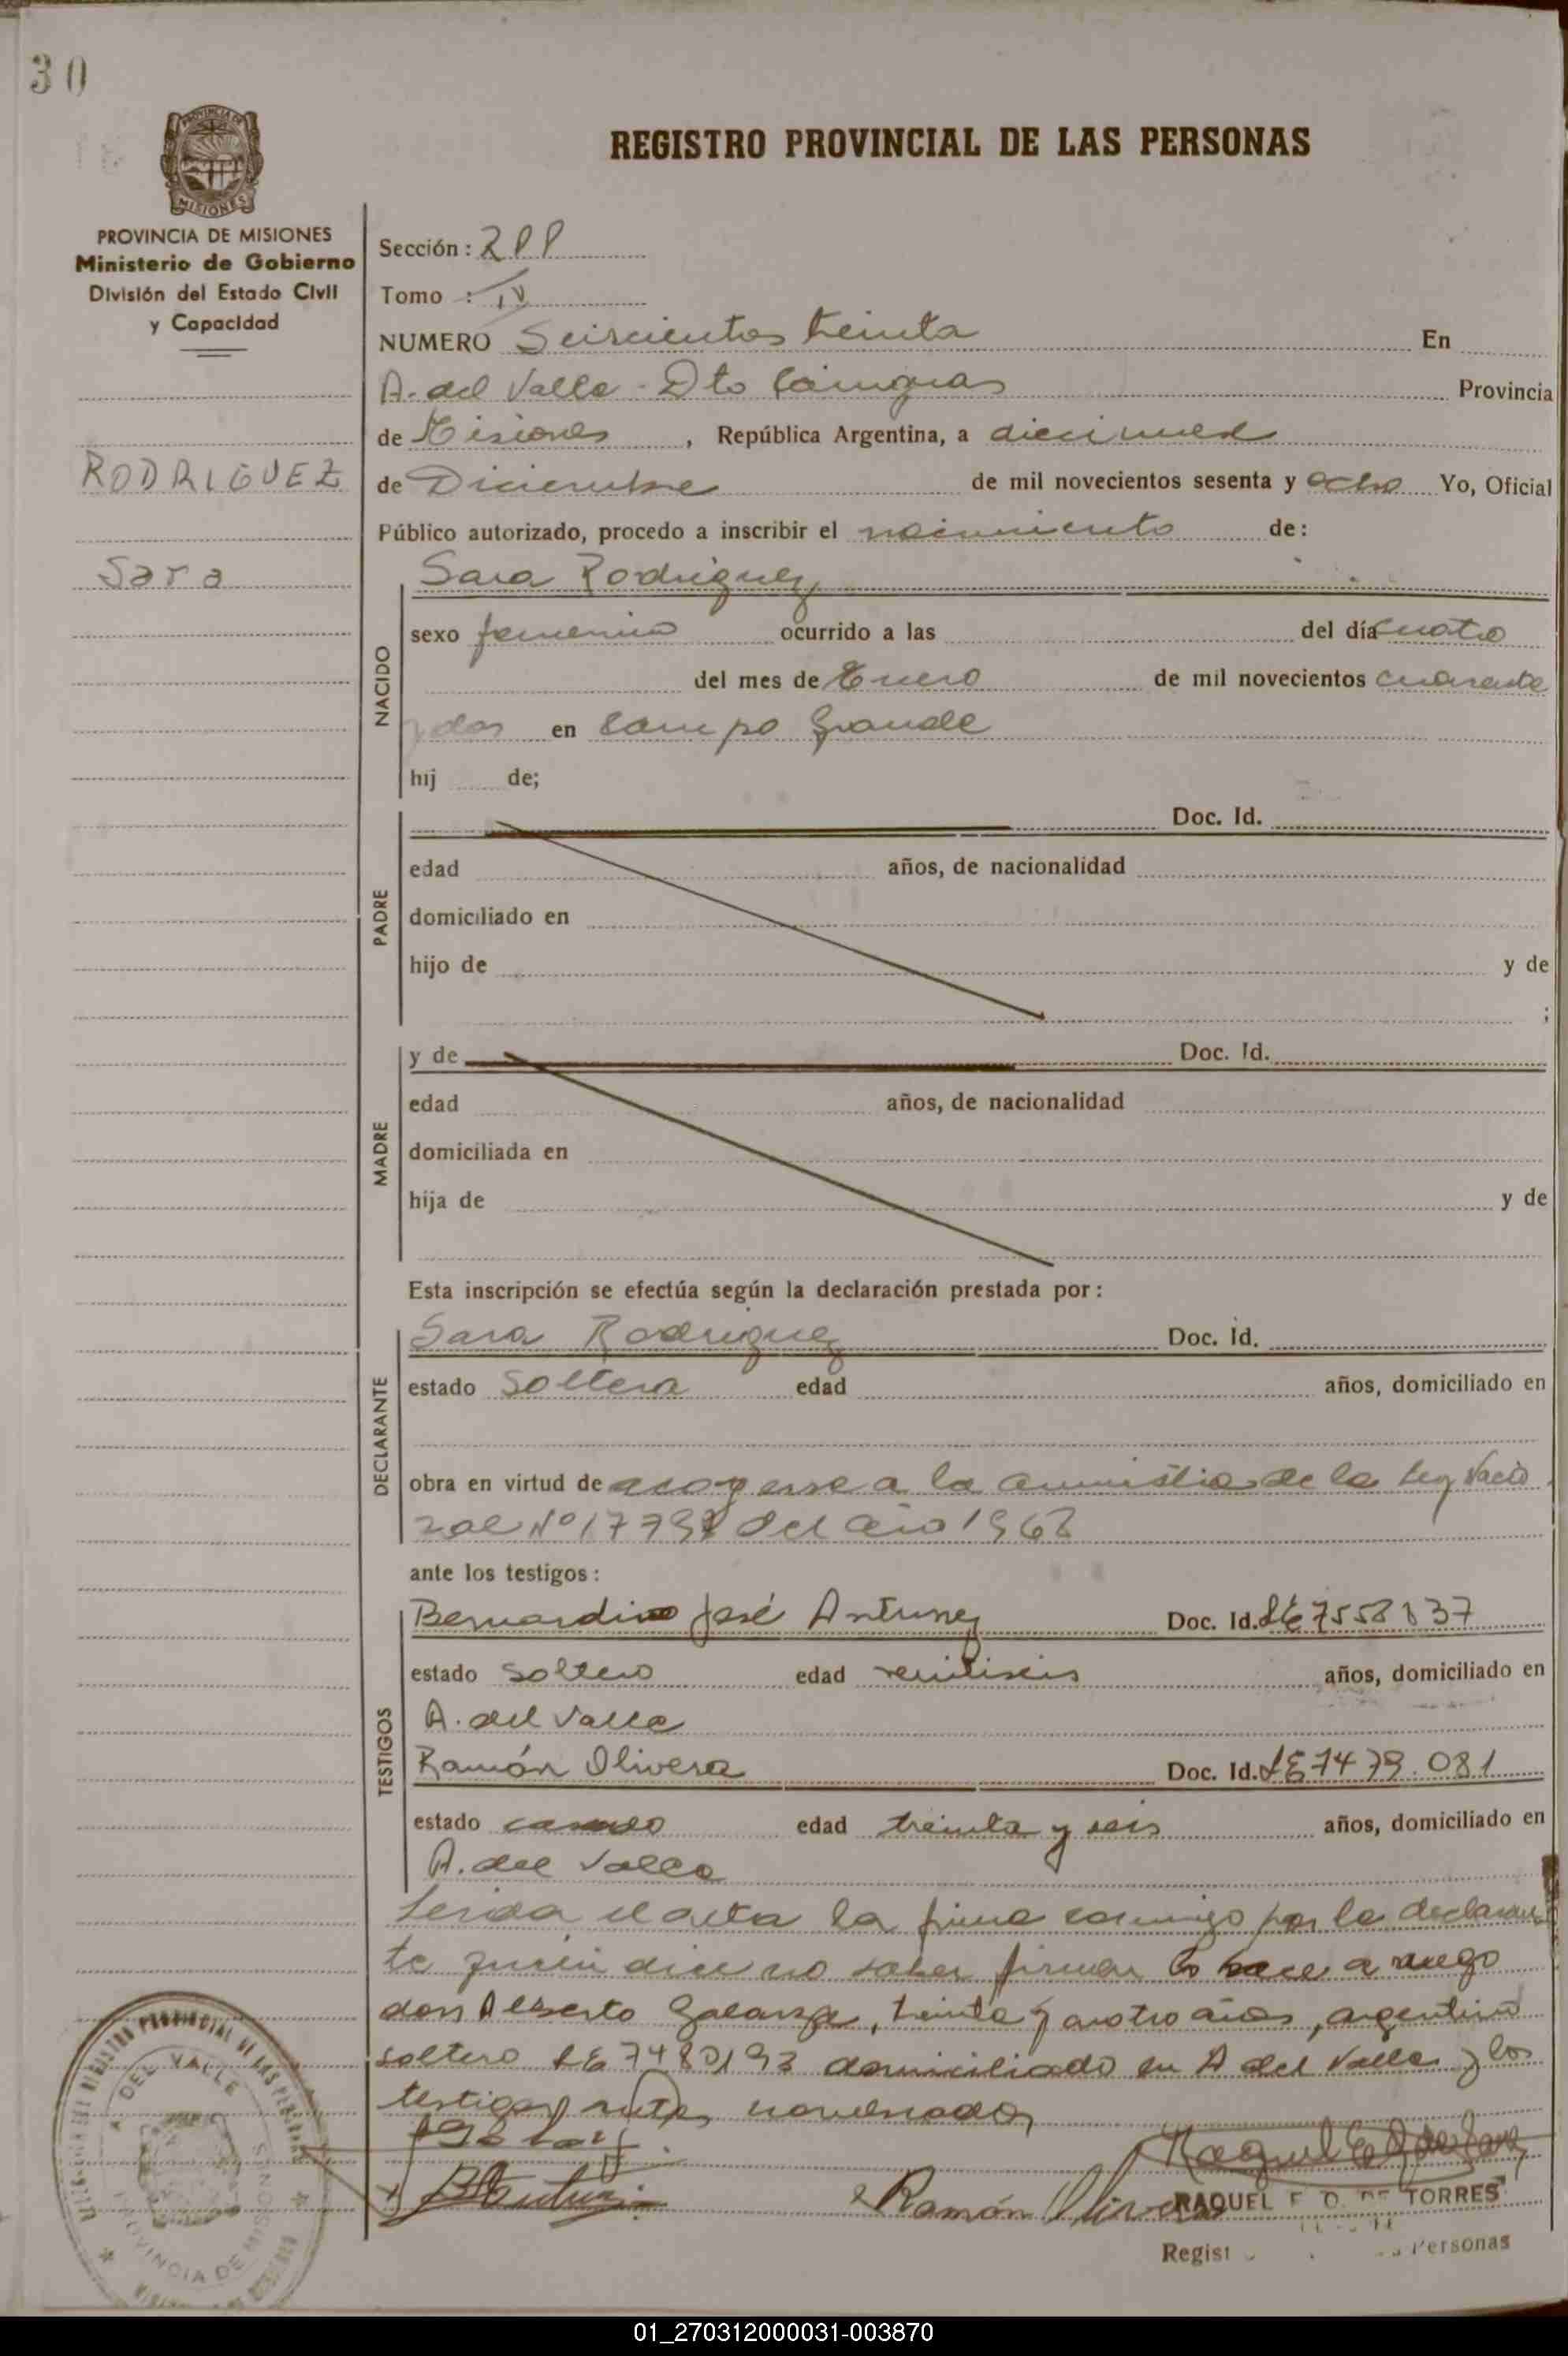 30
PROVINCIA DE
MISIONES
REGISTRO PROVINCIAL DE LAS PERSONAS
PROVINCIA DE MISIONES
Ministerio de Gobierno
División del Estado Civil
y Capacidad
RODRIGUEZ
Sara
Sección :
Tomo : IV
NUMERO Seiscientos treinta En
A. del Valle - Dto Cainguas Provincia
de Misiones , República Argentina, a diecinueve
de Diciembre de mil novecientos sesenta y ocho Yo, Oficial
Público autorizado, procedo a inscribir el nacimiento de:
NACIDO
Sara Rodriguez
sexo femenino ocurrido a las del día cuatro
del mes de Enero de mil novecientos cuarenta
y dos en Campo Grande
hij de;
PADRE
Doc. Id.
edad años, de nacionalidad
domiciliado en
hijo de y de
;
MADRE
y de Doc. Id.
edad años, de nacionalidad
domiciliada en
hija de y de
Esta inscripción se efectúa según la declaración prestada por :
DECLARANTE
Sara Rodriguez Doc. Id.
estado Soltera edad años, domiciliado en
obra en virtud de acogerse a la amnistia de la Ley Nacio
nal Nº del año 1968
ante los testigos :
TESTIGOS
Bernardino José Antunez Doc. Id. LE
estado Soltero edad veintiseis años, domiciliado en
A. del Valle
Ramón Olivera Doc. Id. LE 7479.081
estado casado edad treinta y seis años, domiciliado en
A. del Valle
Leida el acta la firma conmigo por la declaran
te quien dice no saber firmar lo hace a ruego
don Alberto Galarza, treinta y cuatro años, argentino
soltero LE domiciliado en A del Valle y los
testigos antes nombrados
Ramón Olivera
RAQUEL E. O. DE TORRES
Regist Personas
REGISTRO PROVINCIAL DE LAS PERSONAS
A. DEL VALLE
PROVINCIA DE MISIONES
01_270312000031-003870